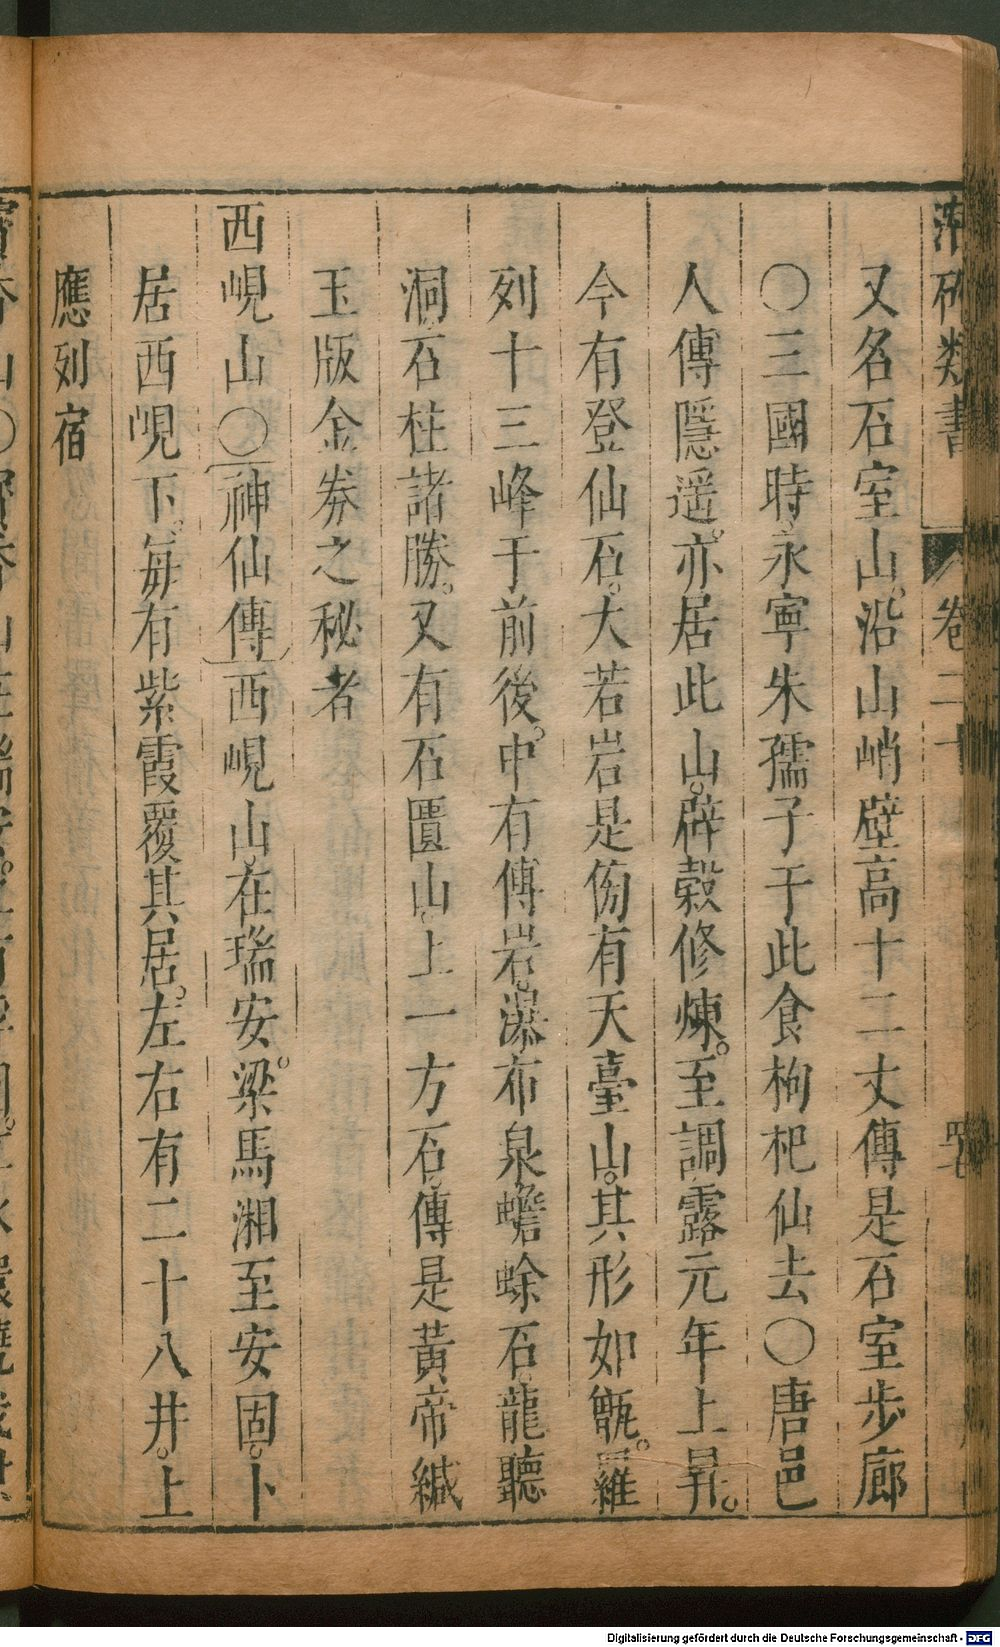 類書 卷二十
又名石室山。沿山峭壁高十二丈傳是石室步廊
〇三國時、永寧朱孺子于此食枸杞仙去〇唐邑
人傅隱遥。亦居此山。辟穀修煉。至調露元年上昇。
今有登仙石。大若岩是傍有天臺山。其形如甑。羅
列十三峰于前後。中有傅岩。瀑布泉蟾蜍石。龍聽
洞、石柱諸勝。又有石匱山、上一方石、傳是黃帝緘
玉版金券之秘者
西峴山〇神仙傳西峴山、在瑞安。梁馬湘至安固。卜
居西峴下。每有紫霞覆其居。左右有二十八井。上
應列宿
Digitalisierung gefördert durch die Deutsche Forschungsgemeinschaft - DFG